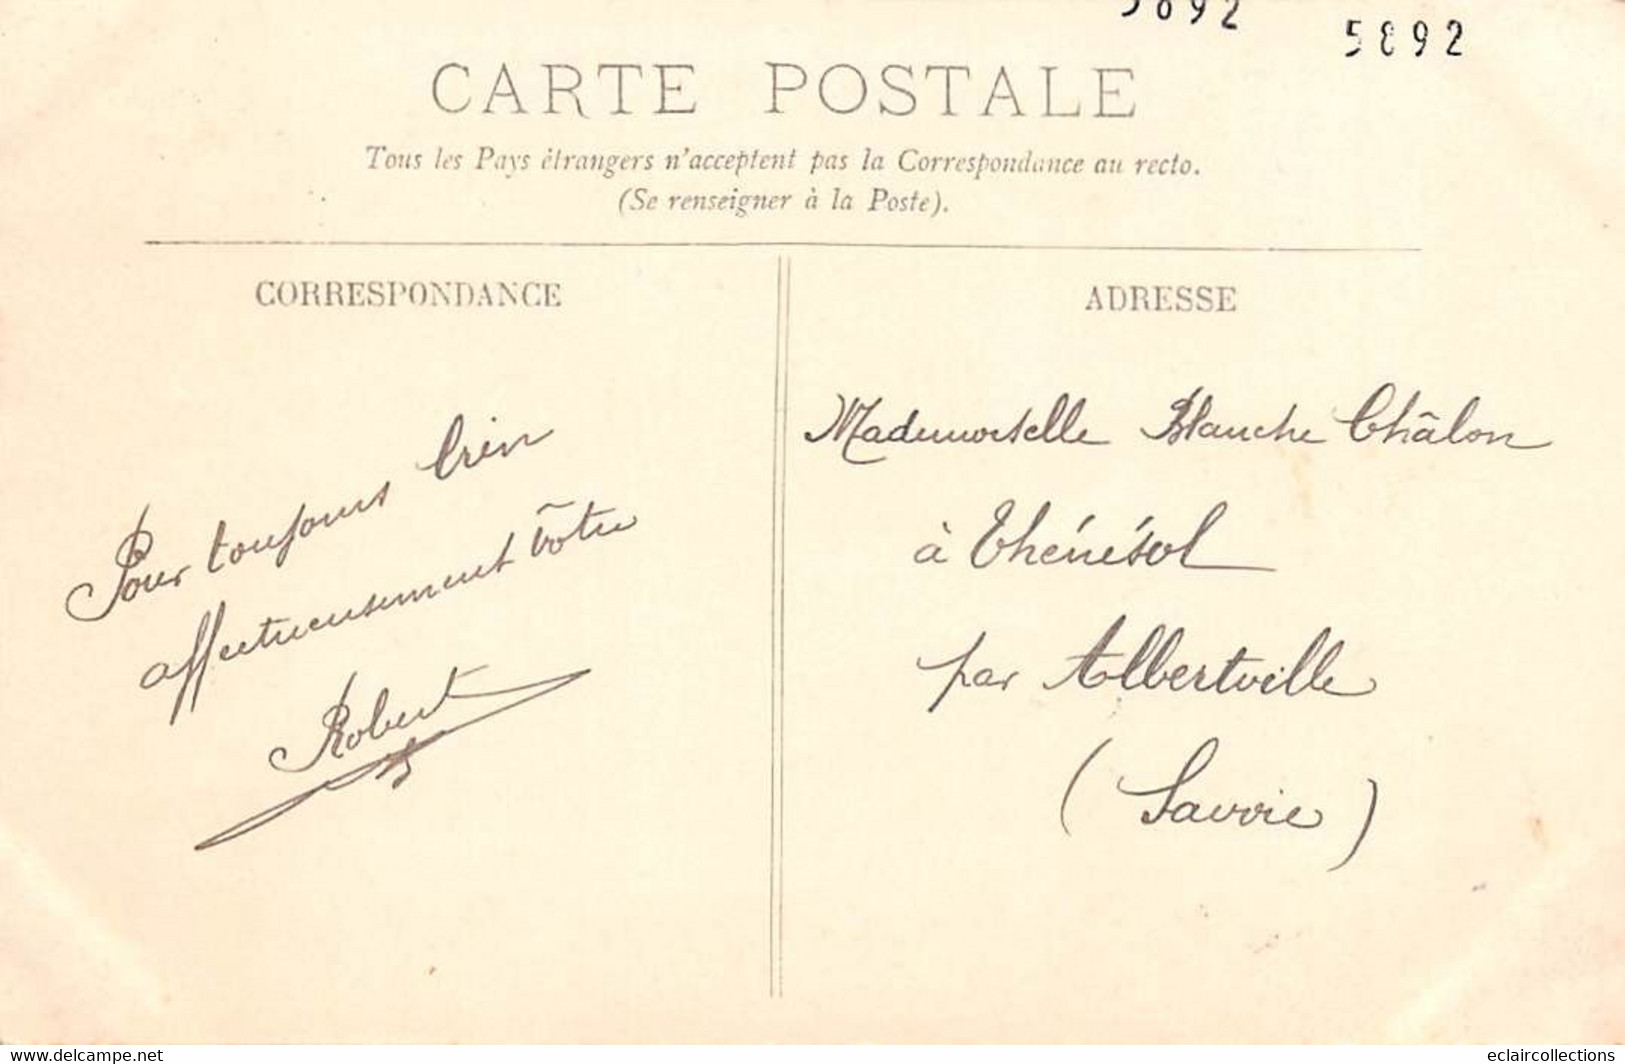 5892
5892
CARTE POSTALE
Tous les Pays étrangers n'acceptent pas la Correspondance au recto.
(Se renseigner à la Poste).
CORRESPONDANCE
ADRESSE
Pour toujours bien
affectueusement vôtre
Robert
Mademoiselle Blanche Châlon
à Thénésol
par Albertville
(Savoie)
www.delcampe.net
eclaircollections